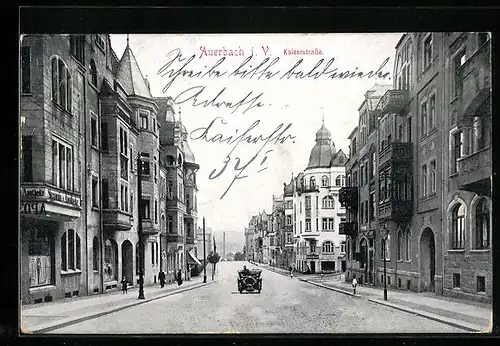 Auerbach i. V. Kaiserstraße.
Schreibe bitte bald wieder.
Adresse
Kaiserstr.
37 I